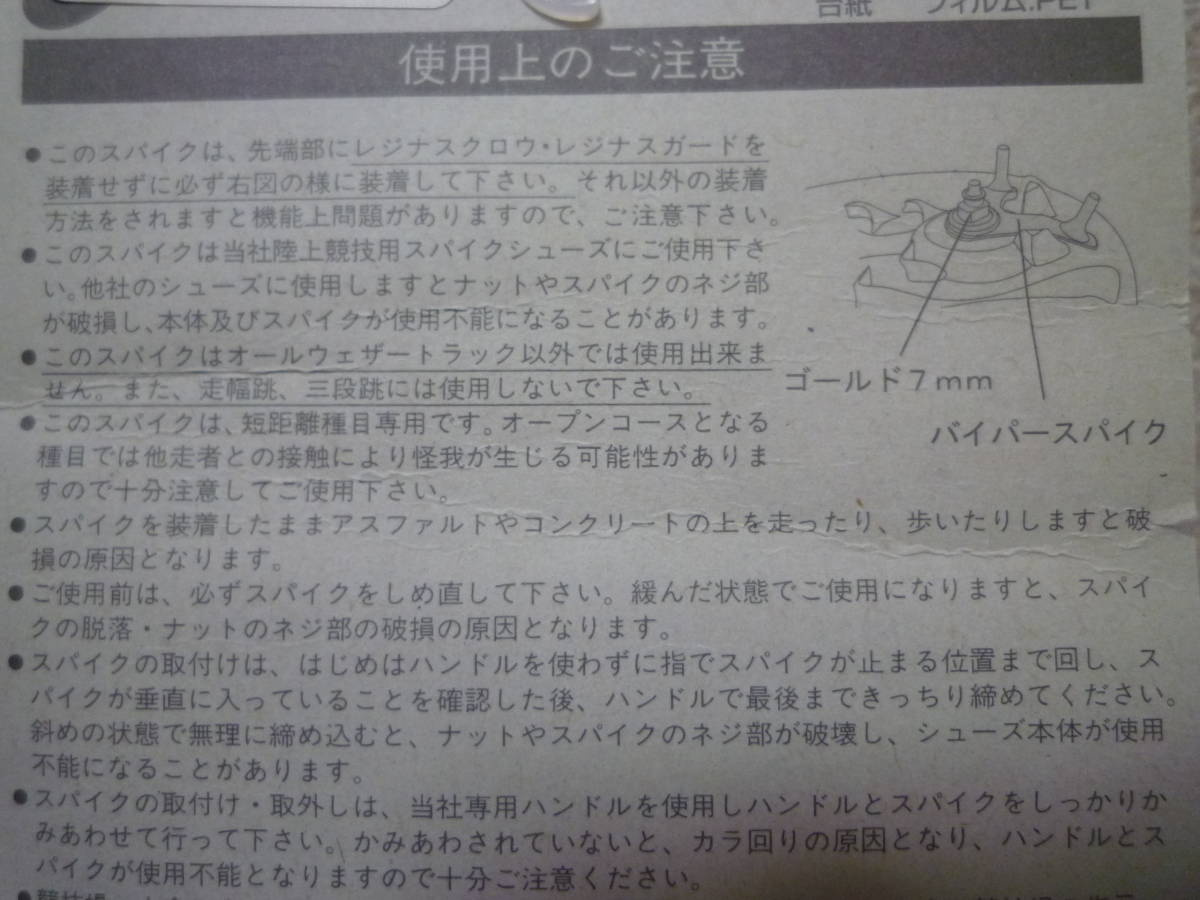 台紙 フィルム:PET
使用上のご注意
●このスパイクは、先端部にレジナスクロウ・レジナスガードを
装着せずに必ず右図の様に装着して下さい。それ以外の装着
方法をされますと機能上問題がありますので、ご注意下さい。
●このスパイクは当社陸上競技用スパイクシューズにご使用下さ
い。他社のシューズに使用しますとナットやスパイクのネジ部
が破損し、本体及びスパイクが使用不能になることがあります。
●このスパイクはオールウェザートラック以外では使用出来ま
せん。また、走幅跳、三段跳には使用しないで下さい。
ゴールド7mm
バイパースパイク
●このスパイクは、短距離種目専用です。オープンコースとなる
種目では他走者との接触により怪我が生じる可能性がありま
すので十分注意してご使用下さい。
●スパイクを装着したままアスファルトやコンクリートの上を走ったり、歩いたりしますと破
損の原因となります。
●ご使用前は、必ずスパイクをしめ直して下さい。緩んだ状態でご使用になりますと、スパイ
クの脱落・ナットのネジ部の破損の原因となります。
●スパイクの取付けは、はじめはハンドルを使わずに指でスパイクが止まる位置まで回し、ス
パイクが垂直に入っていることを確認した後、ハンドルで最後まできっちり締めてください。
斜めの状態で無理に締め込むと、ナットやスパイクのネジ部が破壊し、シューズ本体が使用
不能になることがあります。
●スパイクの取付け・取外しは、当社専用ハンドルを使用しハンドルとスパイクをしっかりか
みあわせて行って下さい。かみあわされていないと、カラ回りの原因となり、ハンドルとス
パイクが使用不能となりますので十分ご注意ください。